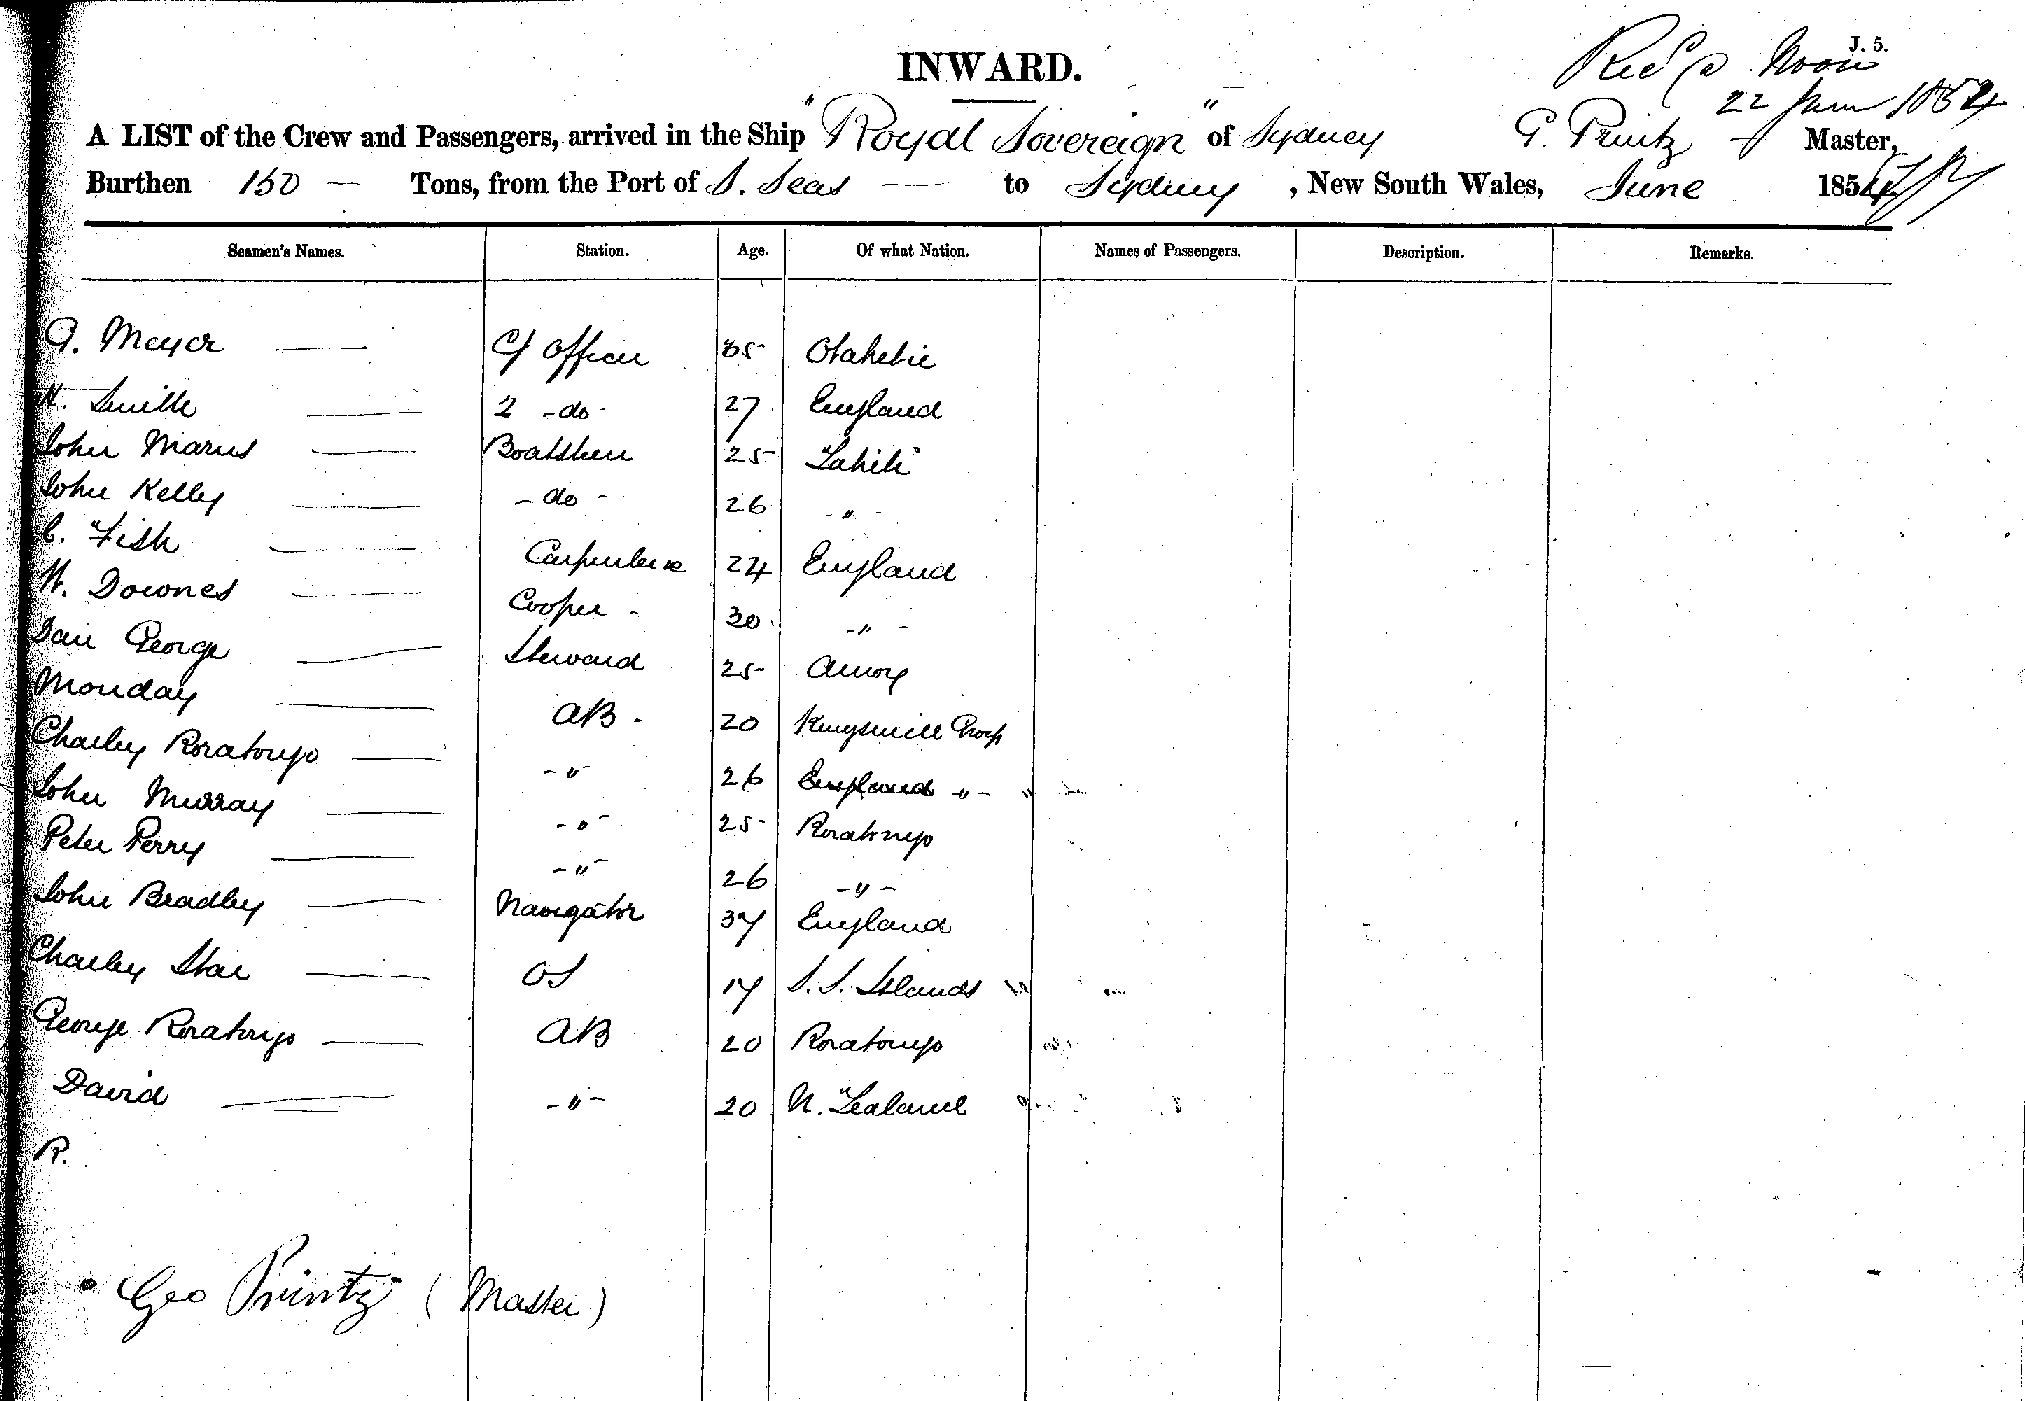 J. 5.
INWARD.
Recd @ Noon
22 June 1854
A LIST of the Crew and Passengers, arrived in the Ship "Royal Sovereign" of Sydney G. Printz Master,
Burthen 150 — Tons, from the Port of S. Seas — to Sydney, New South Wales, June 1854
Seamen's Names. Station. Age. Of what Nation. Names of Passengers. Description. Remarks.
G. Meyer — C/ Officer 35 Otahetie
H. Smith — 2 -do- 27 England
John Marus — Boatsteer 25 Tahiti
John Kelly — -do- 26 - " -
C. Fish — Carpenter 24 England
W. Downes — Cooper - 30 - " -
Dan George — Steward 25 Amoy
Monday — AB - 20 Kingsmill Group
Charley Roratongo — - " - 26 England - " -
John Murray — - " - 25 Roratongo
Peter Perry — - " - 26 - " -
John Bradley — Navigator 37 England
Charley Star — OS 17 S. S. Islands
George Roratongo — AB 20 Roratongo
David — - " - 20 N. Zealand
R.
Geo Printz (Master)